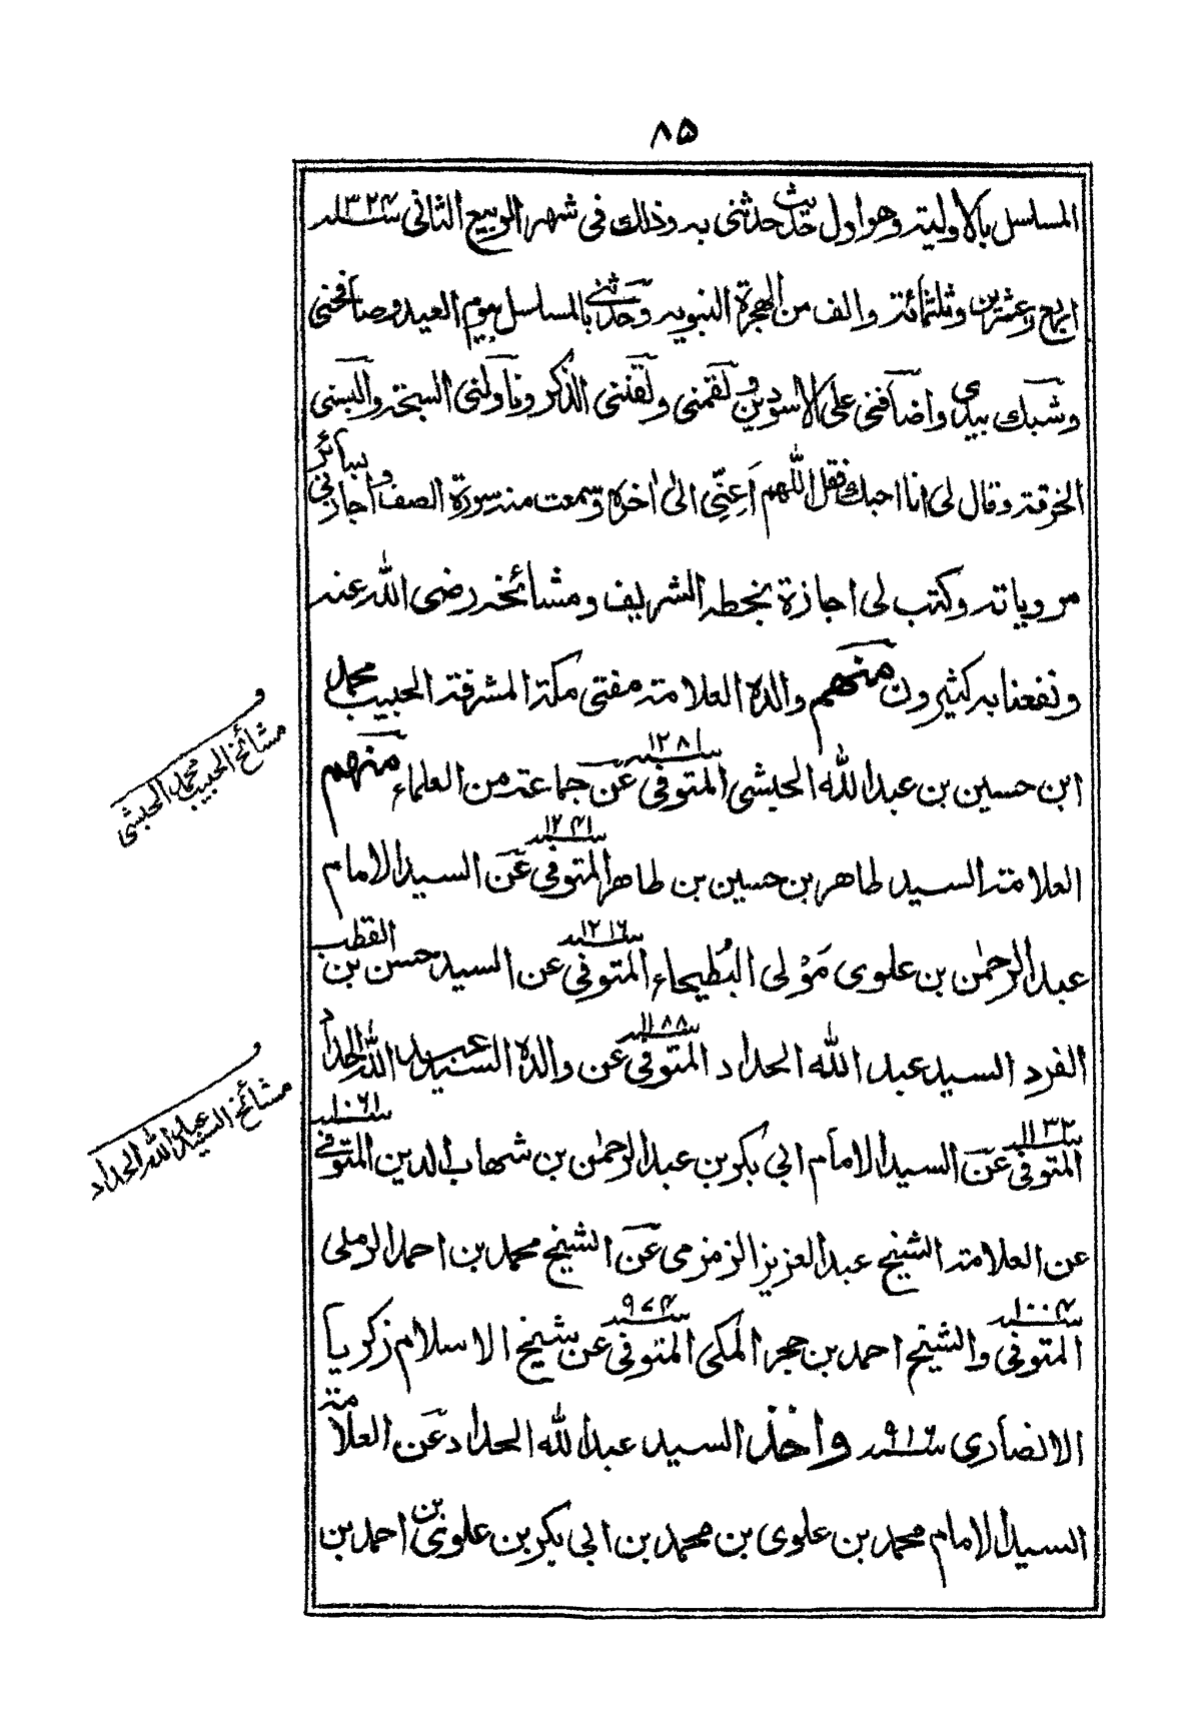 ٨٥
المسلسل بالاولية وهو اول حديث حدثنى به وذلك فى شهر الربيع الثانى سنة ١٣٢٤
اربع وعشرين وثلثمائة والف من الهجرة النبويه وحدثنى بالمسلسل بيوم العيد وصافحنى
وشبك بيدى واضافنى على الاسودين ولقمنى ولقننى الذكر وناولنى السبحة والبسنى
الخرقة وقال لى انا احبك فقل اللهم اَعِنِّى الىٰ اٰخره وسمعت منه سورة الصف واجازنى بسائر
مروياته وكتب لى اجازة بخطه الشريف ومشائخه رضى الله عنه
ونفعنا به كثيرون منهم والده العلامة مفتى مكة المشرفة الحبيب محمد
ابن حسين بن عبد الله الحبشى المتوفى سنة ١٢٨١ عن جماعة من العلماء منهم
العلامة السيد طاهر بن حسين بن طاهر المتوفى سنة ١٢٤١ عن السيد الامام
عبد الرحمٰن بن علوى مَوْلى البُطيحاء المتوفى سنة ١٢١٦ عن السيد حسن بن القطب
الفرد السيد عبد الله الحداد المتوفى سنة ١١٨٨ عن والده السيد عبد الله الحداد
المتوفى سنة ١١٣٢ عن السيد الامام ابى بكر بن عبد الرحمٰن بن شهاب الدين المتوفى سنة ١٠٦١
عن العلامة الشيخ عبد العزيز الزمزمى عن الشيخ محمد بن احمد الرملى
المتوفى سنة ١٠٠٤ والشيخ احمد بن حجر المكى المتوفى سنة ٩٧٤ عن شيخ الاسلام زكريا
الانصارى سنة ٩١٦ واخذ السيد عبد الله الحداد عن العلامة
السيد الامام محمد بن علوى بن محمد بن ابى بكر بن علوى بن احمد بن
و
مشائخ الحبيب محمد الحبشى
و
مشائخ السيد عبد الله الحداد